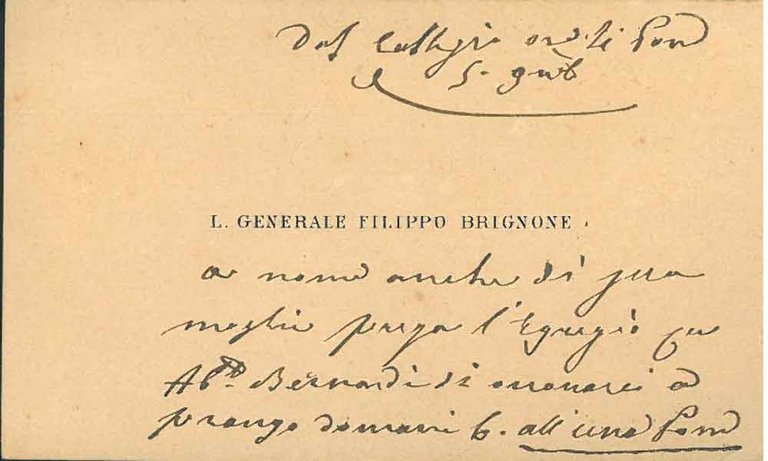 Dal Collegio
5. 9mb
L. GENERALE FILIPPO BRIGNONE
a nome anche di sua
moglie prega l'Egregio
Ab. Bernardi di onorarci a
pranzo domani 6. all'una Pom